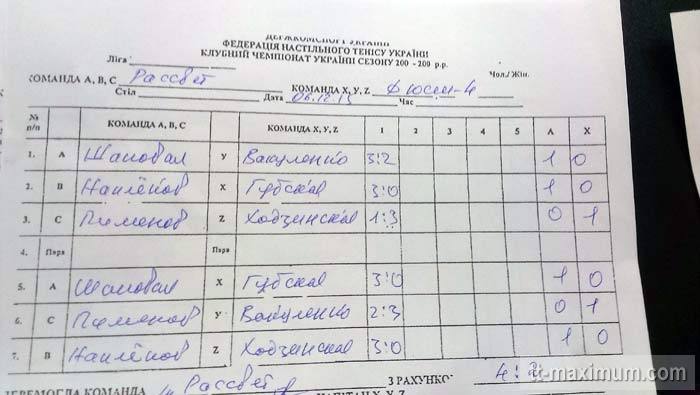 ФЕДЕРАЦІЯ НАСТІЛЬНОГО ТЕНІСУ УКРАЇНИ
Ліга
КЛУБНИЙ ЧЕМПІОНАТ УКРАЇНИ СЕЗОНУ 200 -200 р.р.
Чол./ Жін.
КОМАНДА А, В, С Рассвет КОМАНДА X, Y, Z
Стіл Дата 06.12.15 Час
№ п/п КОМАНДА А, В, С КОМАНДА X, Y, Z 1 2 3 4 5 А Х
1. А Шаповал У Вакуленко 3:2 1 0
2. В Наплёков Х Губская 3:0 1 0
3. С Пименов Z Ходзинская 1:3 0 1
4. Пара Пара
5. А Шаповал Х Губская 3:0 1 0
6. С Пименов У Вакуленко 2:3 0 1
7. В Наплёков Z Ходзинская 3:0 1 0
ПЕРЕМОГЛА КОМАНДА Рассвет З РАХУНКОМ 4:2
tt-maximum.com